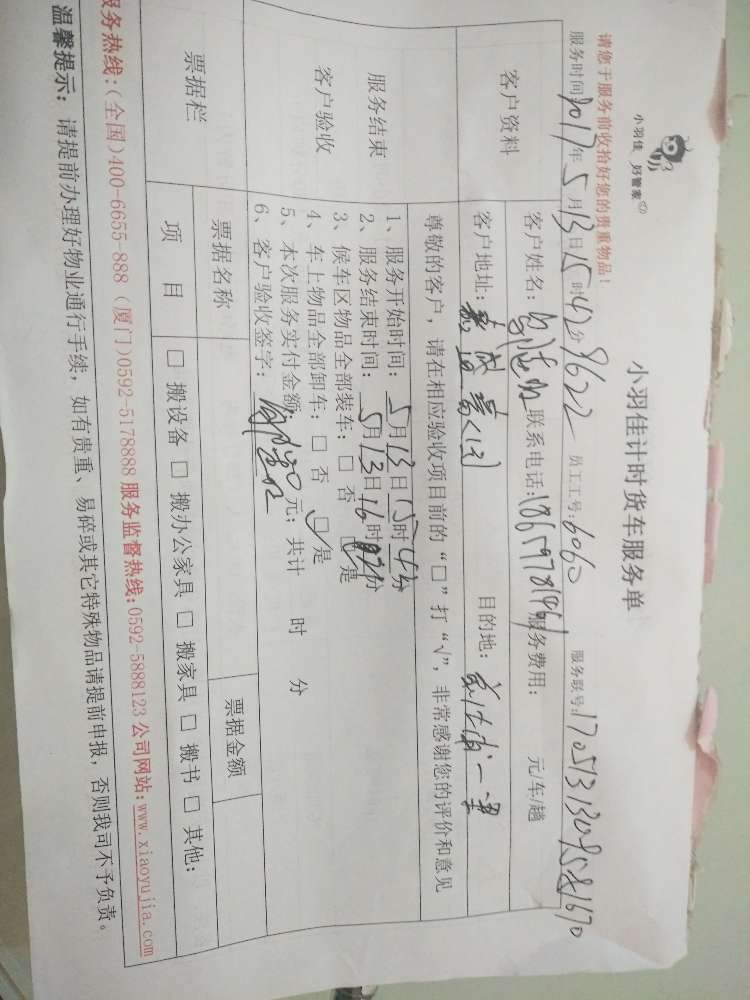 小羽佳 好管家
小羽佳计时货车服务单
请您于服务前收拾好您的贵重物品!
服务时间 2017年 5月13日15时42分 9622 员工工号:6060 服务联号:
客户资料
客户姓名: 联系电话: 服务费用: 元/车/趟
客户地址: 目的地:
尊敬的客户,请在相应验收项目前的“□”打“√”,非常感谢您的评价和意见
服务结束
客户验收
1、服务开始时间: 5月13日15时4分
2、服务结束时间: 5月13日16时 分
3、候车区物品全部装车: □ 否 是
4、车上物品全部卸车: □ 否 是
5、本次服务实付金额 元; 共计 时 分
6、客户验收签字:
票据栏
票据名称 票据金额
项 目 □ 搬设备 □ 搬办公家具 □ 搬家具 □ 搬书 □ 其他:
服务热线:(全国)400-6655-888 (厦门)0592-5178888 服务监督热线:0592-5888123 公司网站:www.xiaoyujia.com
温馨提示: 请提前办理好物业通行手续,如有贵重、易碎或其它特殊物品请提前申报,否则我司不予负责。